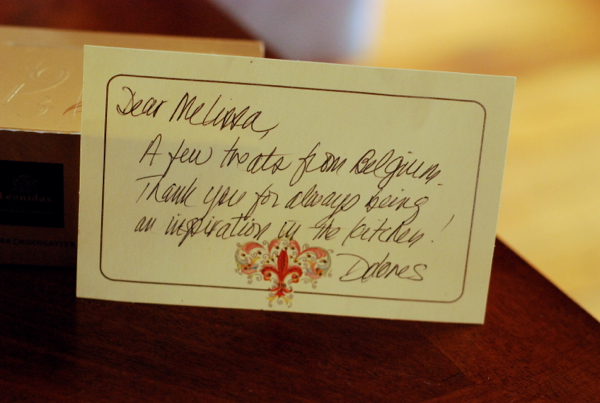 Dear Melissa,
A few treats from Belgium.
Thank you for always being
an inspiration in the kitchen!
Dolores
Leonidas